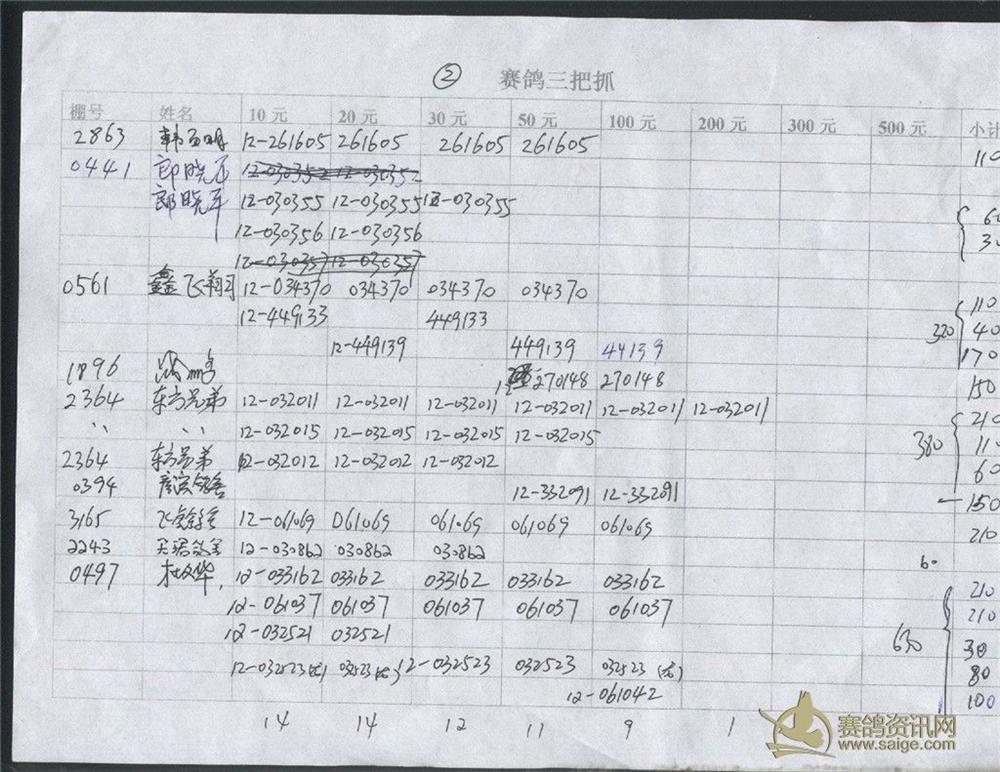 ② 赛鸽三把抓
棚号 姓名 10元 20元 30元 50元 100元 200元 300元 500元 小计
2863 12-261605 261605 261605 261605 110
0441 郎晓军 12-030352 12-030352
郎晓军 12-030355 12-030355 12-030355 60
12-030356 12-030356 30
12-030357 12-030357
0561 鑫飞翔 12-034370 034370 034370 034370 110
12-449133 449133 320 40
12-449139 449139 44139 170
1896 270148 270148 150
2364 东方兄弟 12-032011 12-032011 12-032011 12-032011 12-032011 12-032011 210
〃 〃 12-032015 12-032015 12-032015 12-032015 380 110
2364 东方兄弟 12-032012 12-032012 12-032012 60
0394 12-332091 12-332091 150
3165 12-061069 061069 061069 061069 061069 210
2243 12-030862 030862 030862 60
0497 杜文华 12-033162 033162 033162 033162 033162 210
12-061037 061037 061037 061037 061037 210
12-032521 032521 630 30
12-032523 032523 12-032523 032523 032523 80
12-061042 100
14 14 12 11 9 1
赛鸽资讯网
www.saige.com